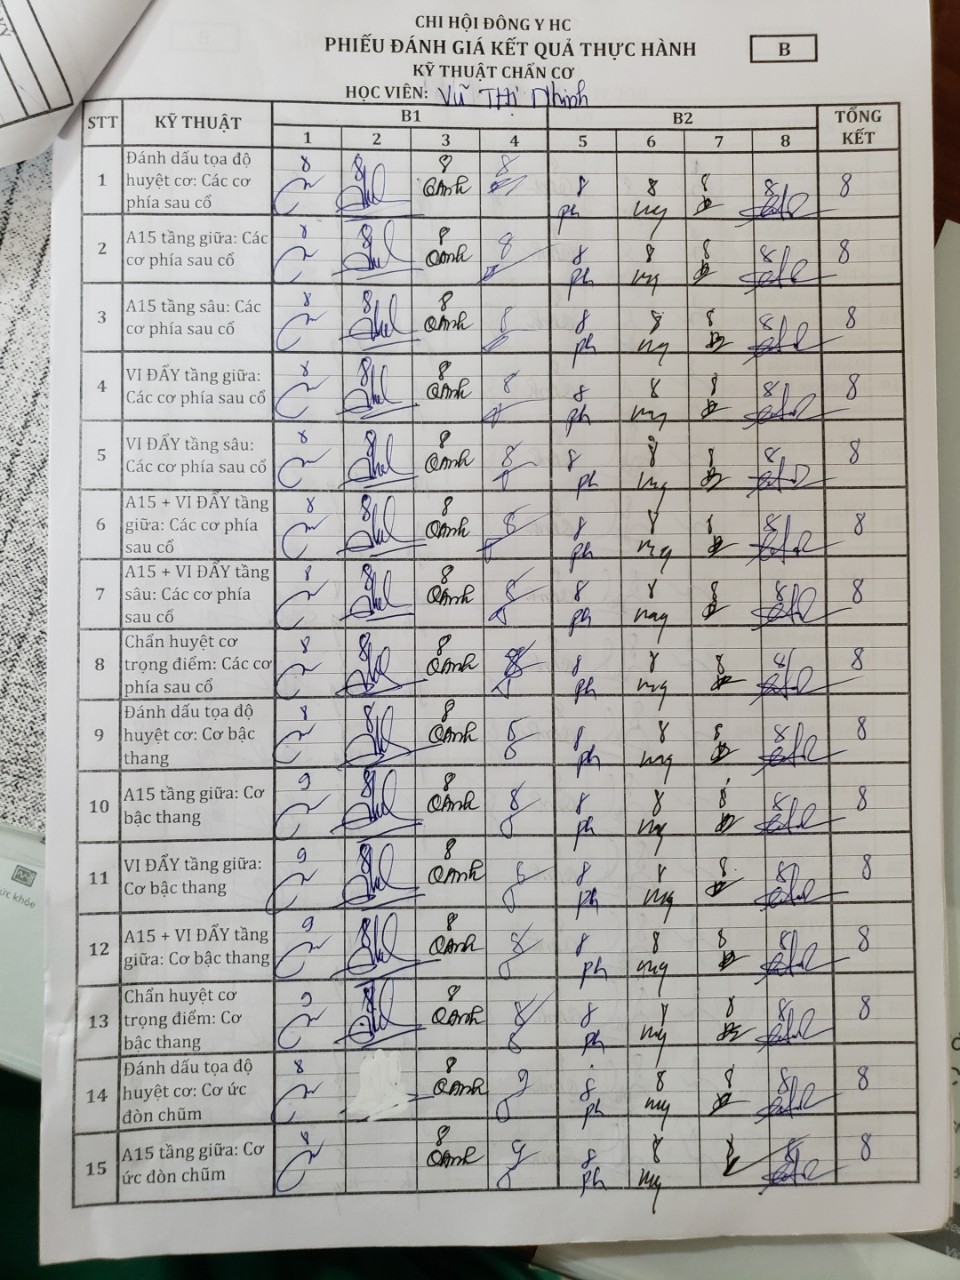 CHI HỘI ĐÔNG Y HC
PHIẾU ĐÁNH GIÁ KẾT QUẢ THỰC HÀNH
B
KỸ THUẬT CHẨN CƠ
HỌC VIÊN: Vũ Thị Nhinh
STT KỸ THUẬT B1 B2 TỔNG KẾT
1 2 3 4 5 6 7 8
1 Đánh dấu tọa độ huyệt cơ: Các cơ phía sau cổ 8 8 8 8 8 8 8 8 8
QAnh ph mg
2 A15 tầng giữa: Các cơ phía sau cổ 8 8 8 8 8 8 8 8 8
QAnh ph mg
3 A15 tầng sâu: Các cơ phía sau cổ 8 8 8 8 8 8 8 8 8
QAnh ph mg
4 VI ĐẨY tầng giữa: Các cơ phía sau cổ 8 8 8 8 8 8 8 8 8
QAnh ph mg
5 VI ĐẨY tầng sâu: Các cơ phía sau cổ 8 8 8 8 8 8 8 8 8
QAnh ph mg
6 A15 + VI ĐẨY tầng giữa: Các cơ phía sau cổ 8 8 8 8 8 8 8 8 8
QAnh ph mg
7 A15 + VI ĐẨY tầng sâu: Các cơ phía sau cổ 8 8 8 8 8 8 8 8 8
QAnh ph mg
8 Chẩn huyệt cơ trọng điểm: Các cơ phía sau cổ 8 8 8 8 8 8 8 8 8
QAnh ph mg
9 Đánh dấu tọa độ huyệt cơ: Cơ bậc thang 8 8 8 8 8 8 8 8
QAnh ph mg
10 A15 tầng giữa: Cơ bậc thang 9 8 8 8 8 8 8 8 8
QAnh ph mg
11 VI ĐẨY tầng giữa: Cơ bậc thang 9 8 8 8 8 8 8 8
QAnh ph mg
12 A15 + VI ĐẨY tầng giữa: Cơ bậc thang 9 8 8 8 8 8 8 8 8
QAnh ph mg
13 Chẩn huyệt cơ trọng điểm: Cơ bậc thang 9 8 8 8 8 8 8 8 8
QAnh ph mg
14 Đánh dấu tọa độ huyệt cơ: Cơ ức đòn chũm 8 8 9 8 8 8 8 8
QAnh ph mg
15 A15 tầng giữa: Cơ ức đòn chũm 8 8 9 8 8 8 8 8
QAnh ph mg